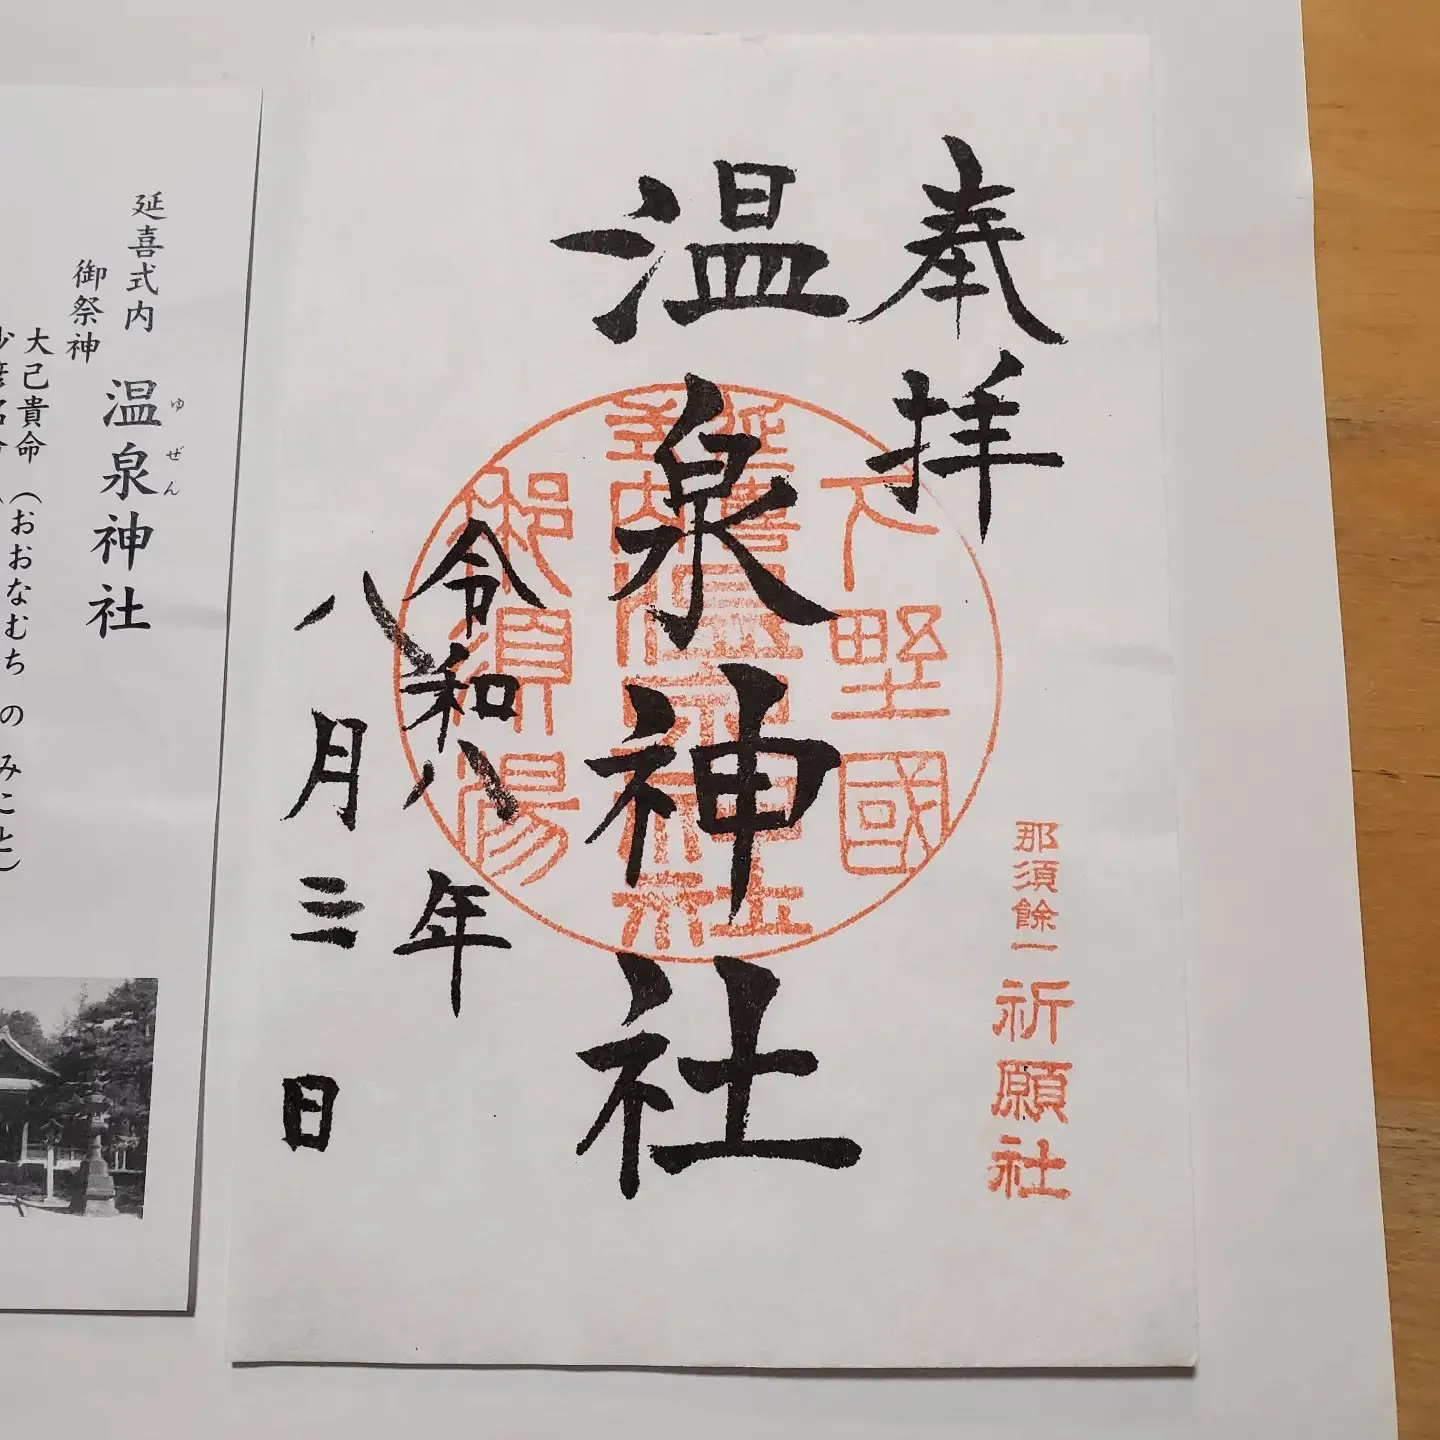 奉拝
温泉神社
令和八年
八月三日
下野國
延喜式内温泉神社
那須湯
那須餘一
祈願社
延喜式内 温泉神社
ゆぜん
御祭神
大己貴命(おおなむちのみこと)